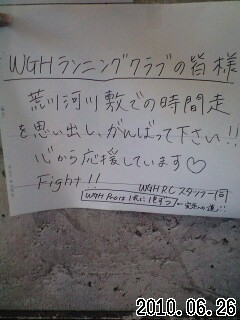 WGHランニングクラブの皆様
荒川河川敷での時間走
を思い出し、がんばって下さい!!
心から応援しています♡
Fight!!
WGHRCスタッフ一同
2010.06.26